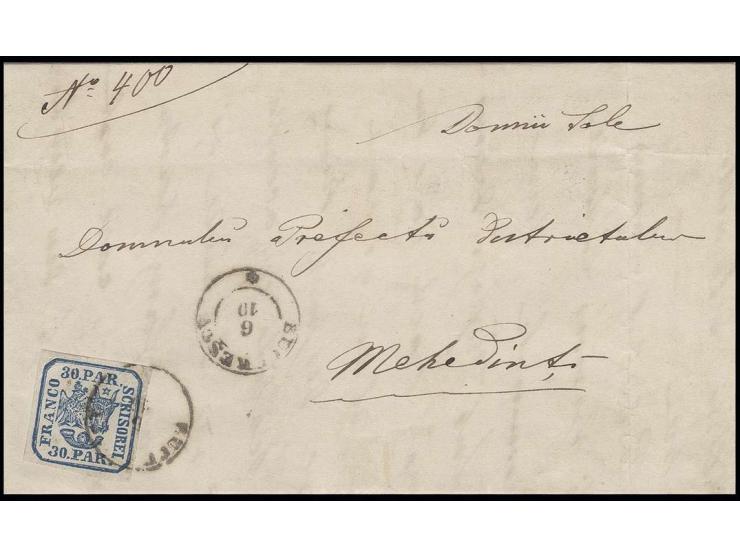 No 400
Domnii Sale
Domnului Prefectu Districtului
Mehedinți
BUCURESCI
6
10
30.PAR.
FRANCO
SCRISOREI
30.PAR.